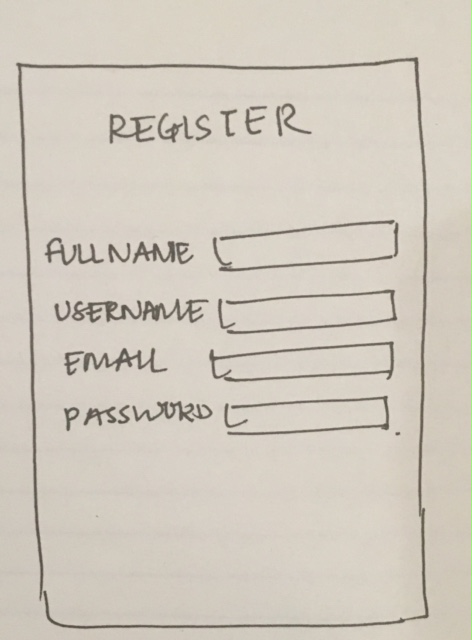 REGISTER
FULLNAME
USERNAME
EMAIL
PASSWORD